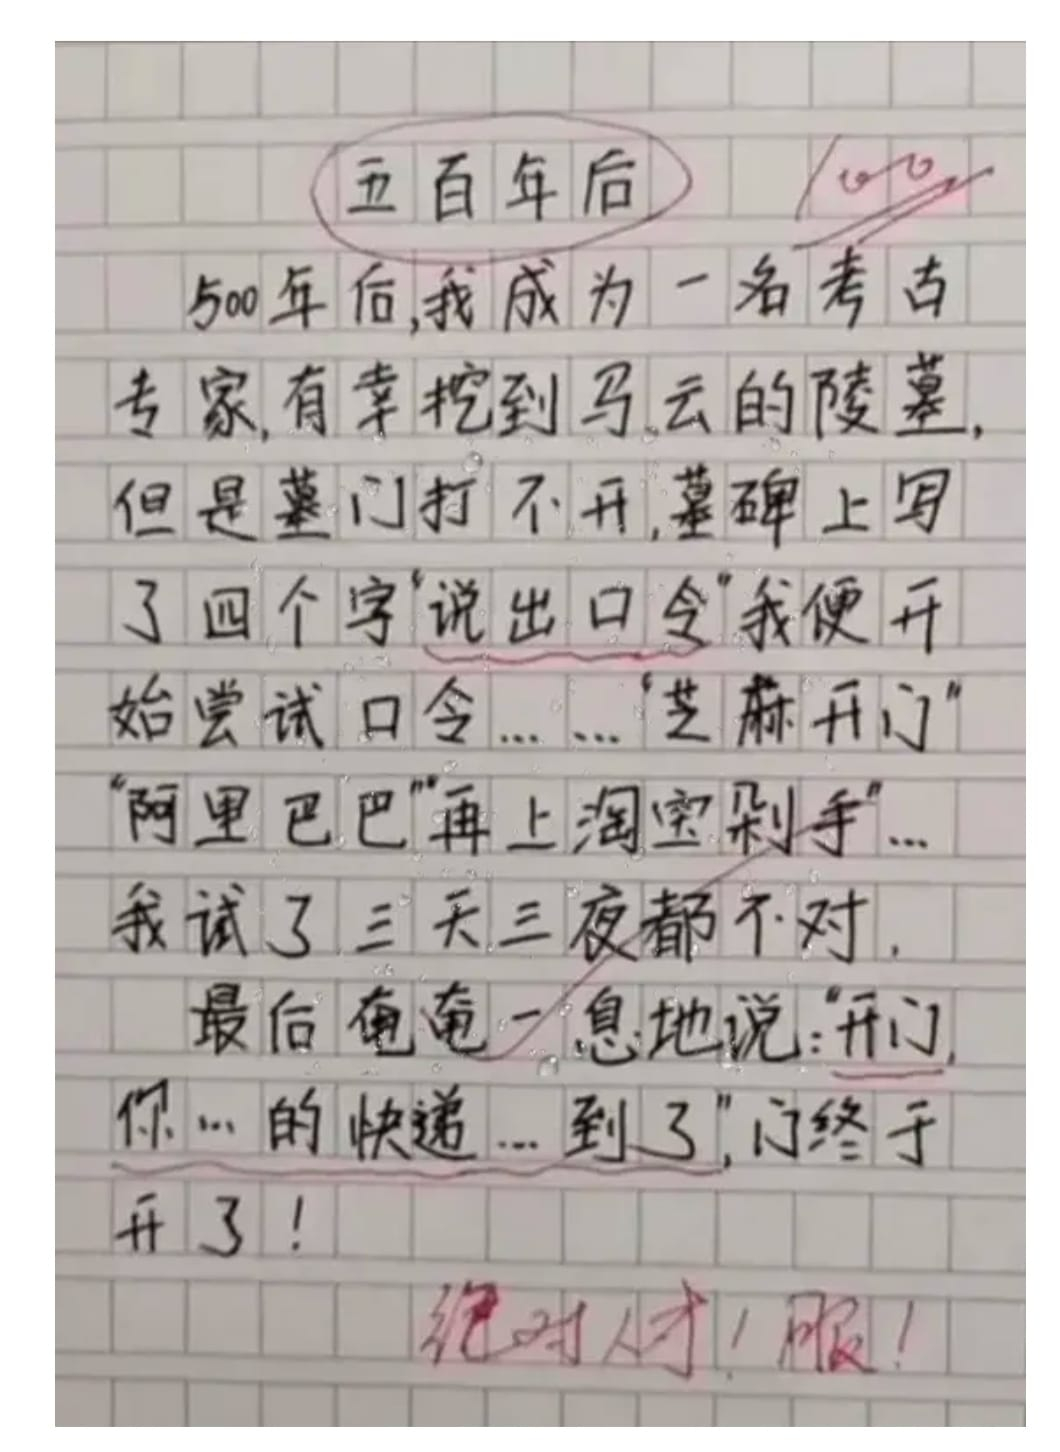 五百年后
100
500年后,我成为一名考古
专家,有幸挖到马云的陵墓,
但是墓门打不开,墓碑上写
了四个字“说出口令”我便开
始尝试口令……“芝麻开门”
“阿里巴巴”“再上淘宝剁手”…
我试了三天三夜都不对.
最后奄奄一息地说:“开门,
你…的快递…到了”,门终于
开了!
绝对人才!服!